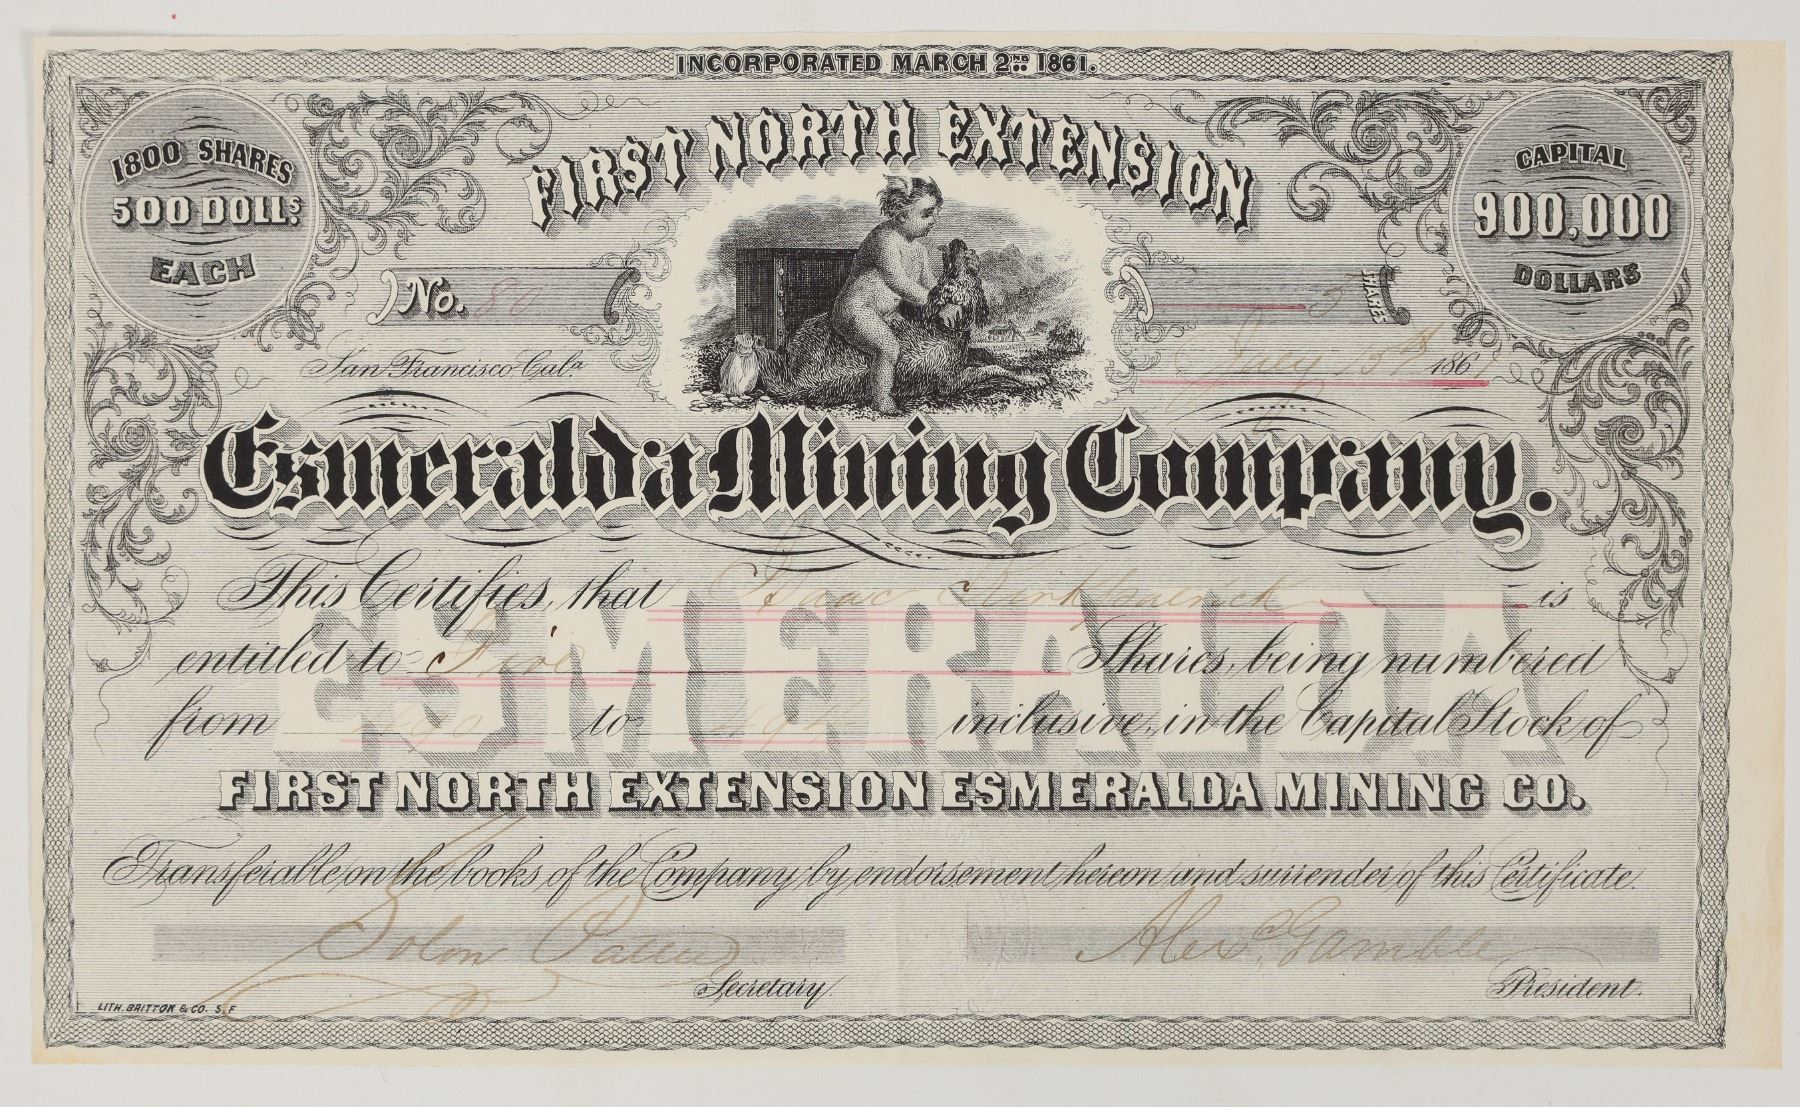 INCORPORATED MARCH 2ND 1861.
1800 SHARES
500 DOLLS
EACH
FIRST NORTH EXTENSION
CAPITAL
900,000
DOLLARS
No. 80
5 SHARES
San Francisco Cala
July 13th 186
Esmeralda Mining Company.
This Certifies, that Isaac Kirkpatrick is
entitled to Five Shares, being numbered
from 490 to 494 inclusive, in the Capital Stock of
ESMERALDA
FIRST NORTH EXTENSION ESMERALDA MINING CO.
Transferable on the books of the Company by endorsement hereon and surrender of this Certificate.
Solon Pattee
Secretary.
Alexd Gamble
President.
LITH. BRITTON & CO. S.F